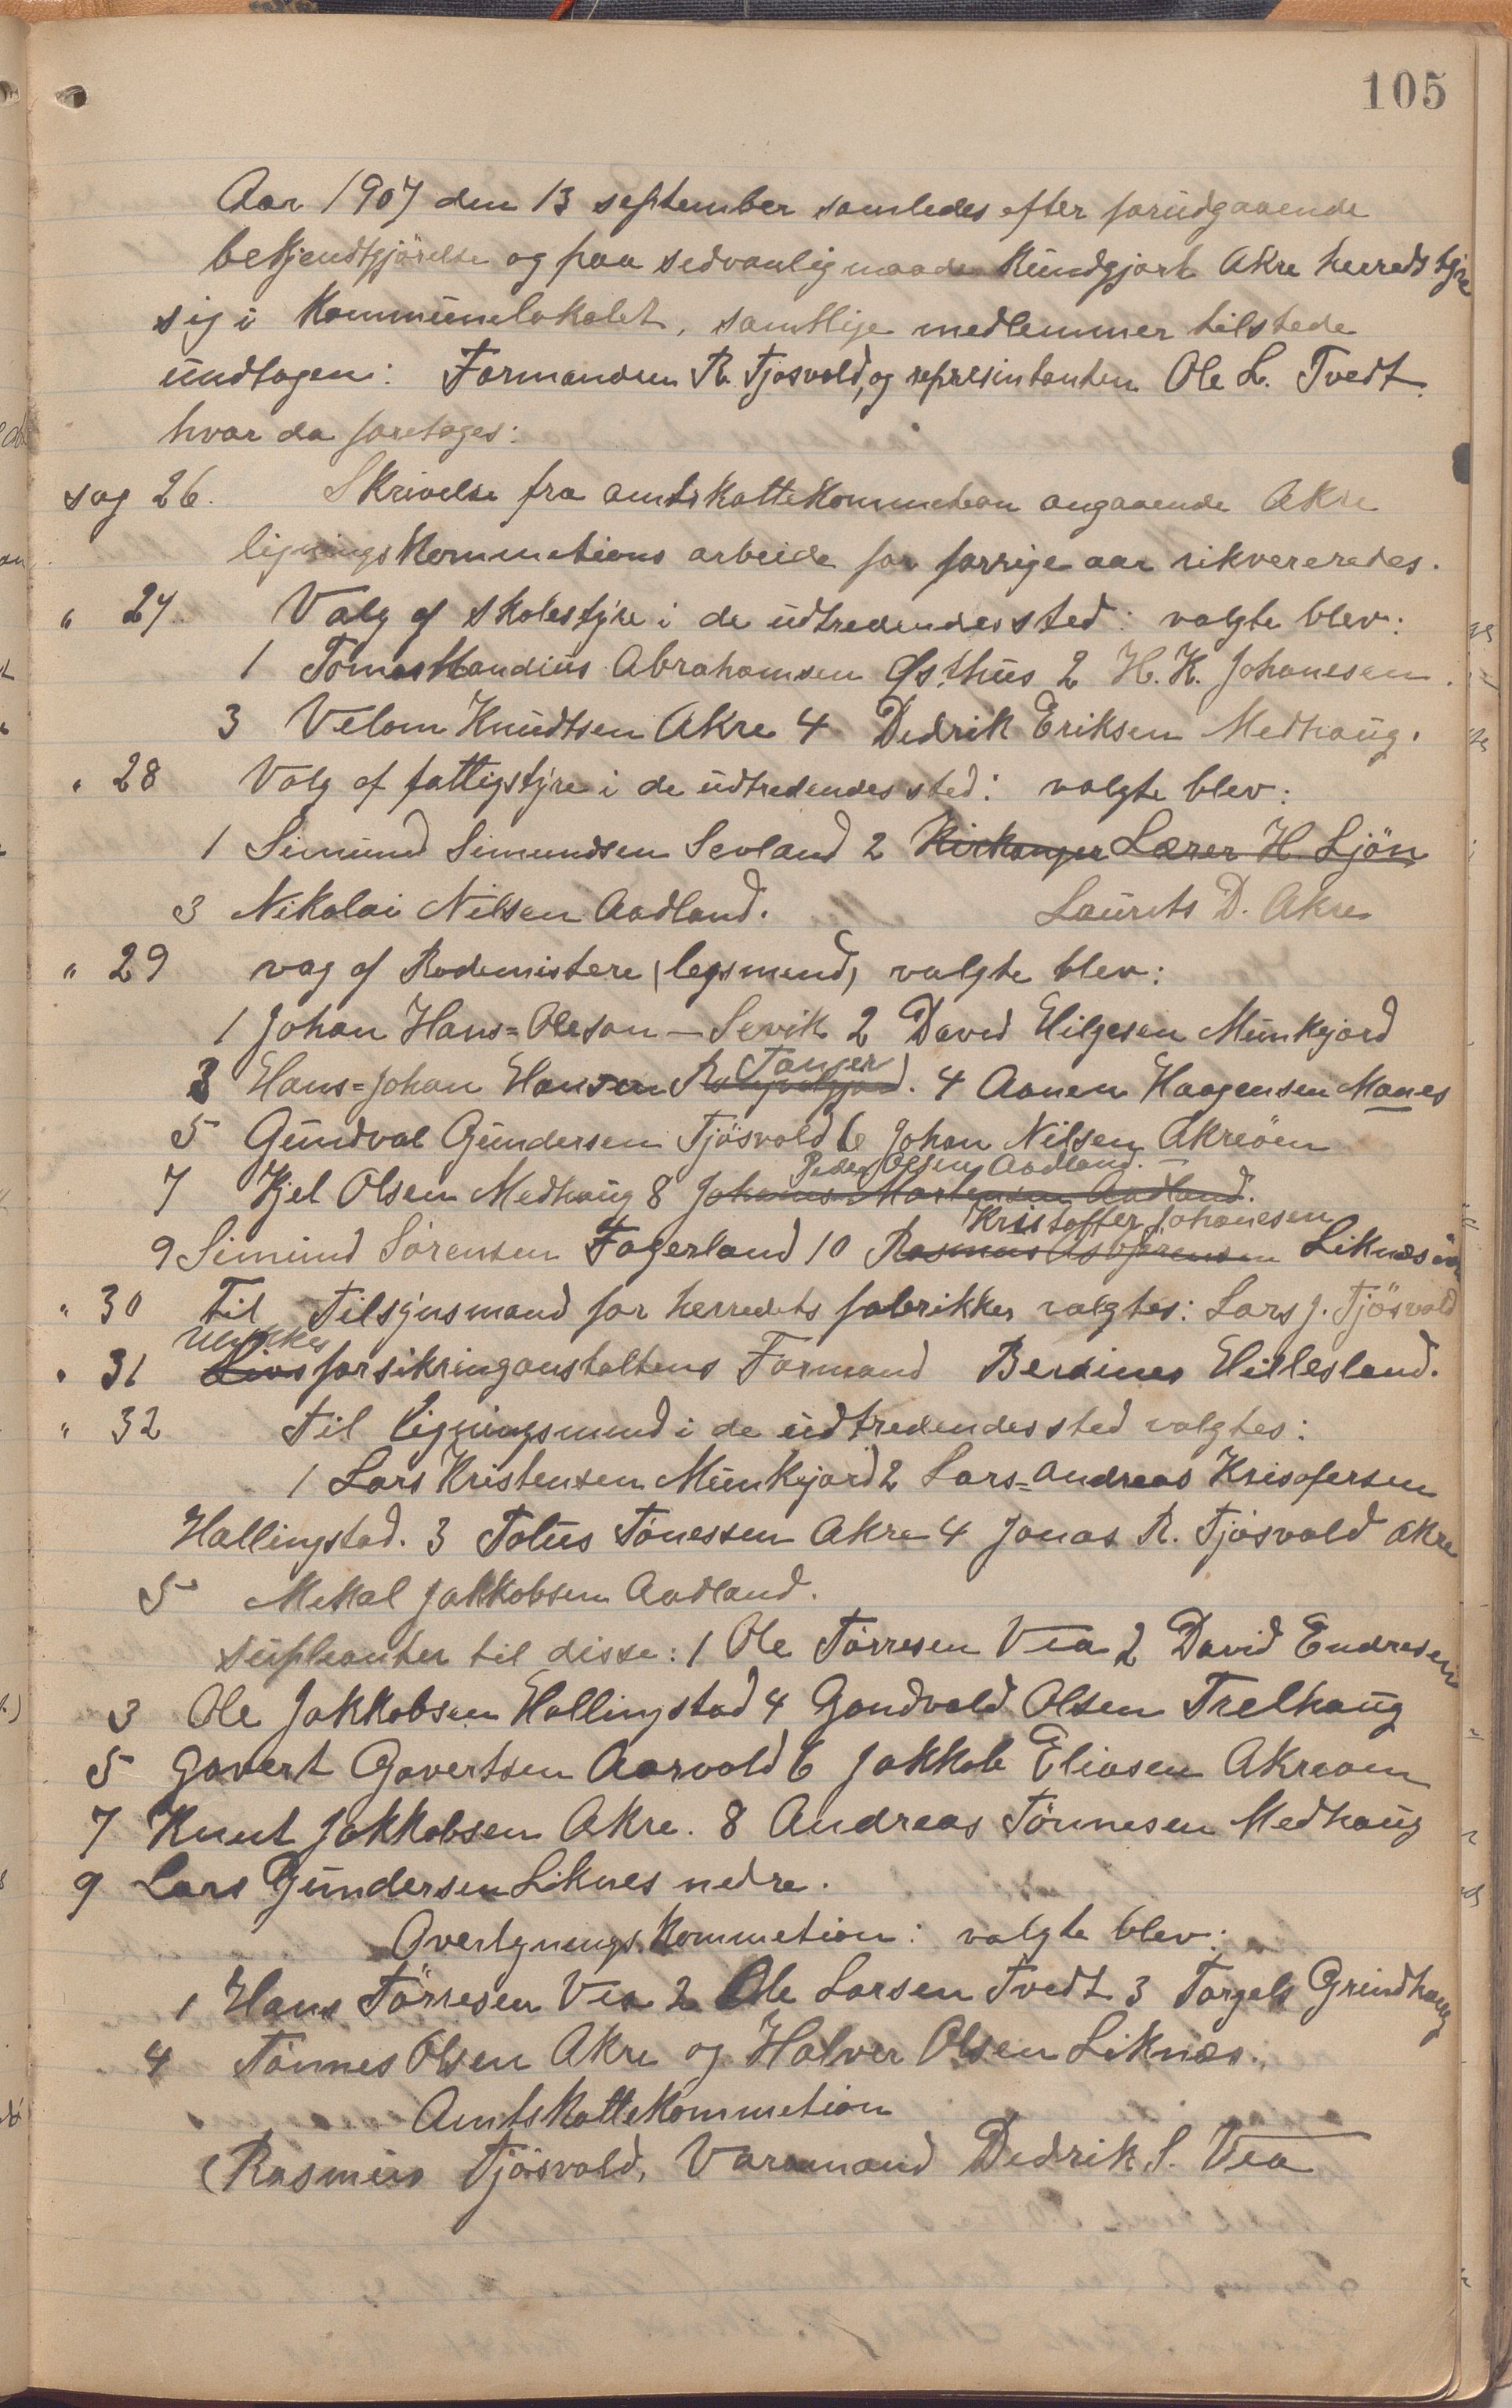 105
Aar 1907 den 13 september samledes efter forudgaaende
bekjendtgjörelse og paa sedvanlig maade kundgjort Akre herredstyre
sig i Kommunelokalet, samtlige medlemmer tilstede
undtagen: Formanden R. Tjosvold, og represintanten Ole L. Tvedt.
hvor da foretages:
sag 26. Skrivelse fra amtskattekommetion angaaende Akre
ligningskommetions arbeide for forrige aar rikvereredes.
" 27. Valg af skolestyre i de udtredendes sted: valgte blev:
1 Tomas Mandius Abrahamsen Østhus 2 H. K. Johanesen.
3 Velom Knudtsen Akre 4 Dedrik Eriksen Medhaug.
" 28 Valg af fattigstyre i de udtredendes sted: valgte blev:
1 Simund Simundsen Sevland 2 Kirkanger Lærer H. Ljön
3 Nikolai Nilsen Aadland. Laurits D. Akre
" 29 vag af Rodemistere (legsmend) valgte blev:
1 Johan Hans=Oleson - Sevik 2 David Hilgesen Munkejord
Tanger
3 Hans=Johan Hansen . 4 Aanen Haagensen Manes
5 Gundval Gundersen Tjösvold 6 Johan Nilsen Akreöen
Peder Olsen Aadland.
7 Kjel Olsen Medhaug 8 Johanes Martensen Aadland.
Kristoffer Johanesen
9 Simund Sörensen Fagerland 10 Rasmus Asbjörensen Liknes
" 30 Til Tilsynsmand for herredets fabrikker valgtes: Lars J. Tjösvold
Ulykkes
" 31 Livsforsikringanstaltens Formand Berdines Hillesland.
" 32 Til ligningsmend i de udtredendes sted valgtes:
1 Lars Kristensen Munkejord 2 Lars=Andreas Krisofersen
Hallingstad. 3 Tolus Tönessen Akre 4 Jonas R. Tjösvold Akre
5 Mekal Jakkobsen Aadland.
supleanter til disse: 1 Ole Törresen Vea 2 David Endresen
3 Ole Jakkobsen Hallingstad 4 Gondvald Olsen Trelhaug
5 Govert Govertsen Aarvold 6 Jakkob Eliasen Akreöen
7 Knut Jakkobsen Akre. 8 Andreas Tönnesen Medhaug
9 Lars Gundersen Liknes nedre.
Overlgningskommetion: valgte blev:
1 Hans Törresen Vea 2 Ole Larsen Tvedt 3 Torgels Grindhaug
4 Tönnes Olsen Akre og Halver Olsen Liknes.
Amtskattekommetion
(Rasmus Tjösvold, Varamand Dedrik S. Vea